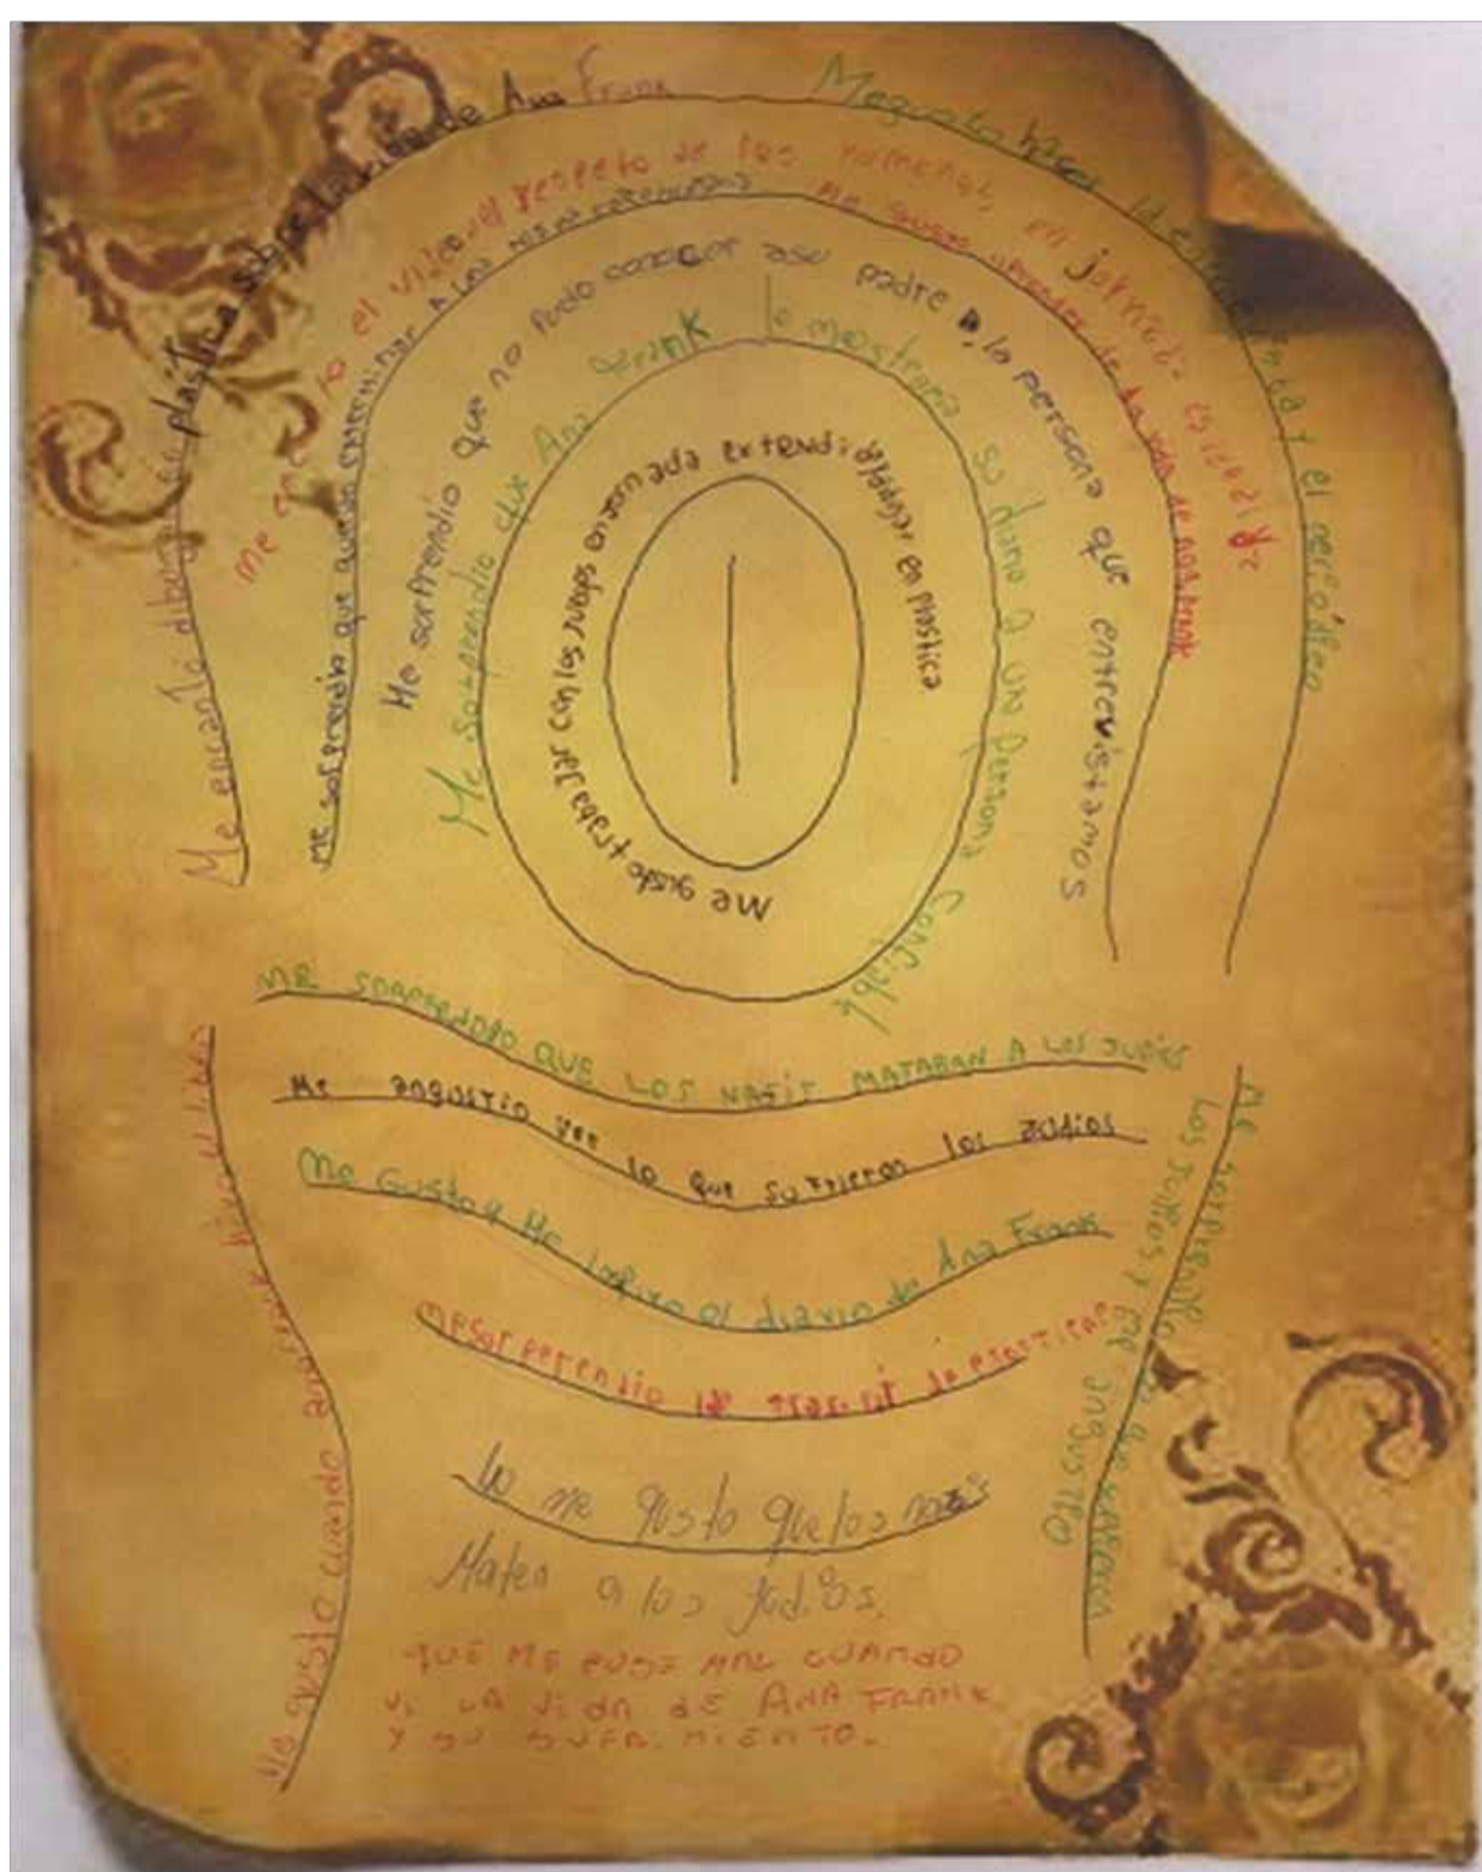 Me encantó dibujar en plástica sobre la vida de Ana Frank
Me gusto hacer la en y el periódico
Me gusto el video el respeto de las en jornada
Me sorprendio que querian exterminar A Las
Me gusto aprender de la vida de ana frank
Me sorprendio que no puedo conocer asu padre o la persona que entrevistamos
Me sorprendio que Ana Frank le mostrara su diario a un Persona Confiable
Me gusto trabajar con los juegos en jornada extendida dibujar en plastica
ME SORPRENDIO QUE LOS NAZIS MATABAN A LOS JUDIOS
Me angustio ver lo que sufrieron los judios
Me Gusto y Me inspiro el diario de Ana Frank
Me sorperendio de
No me gusto que los nazis
Maten a los judios.
QUE ME PUSE MAL CUANDO
Vi LA ViDA dE ANA FRANK
Y SU SUFRiMiENTO.
Me gusto cuando ana frank
Me sorprendio que
Los judios y me angustio